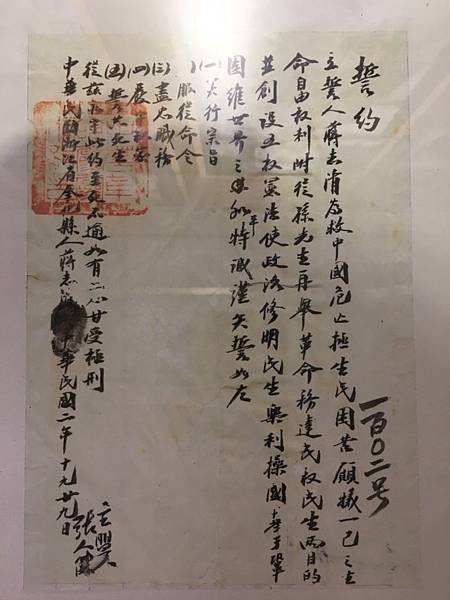 誓約
一百〇二号
立誓人蔣志清為救中國危亡拯生民困苦願犧一己之生
命自由權利附從孫先生再舉革命務達民權民生兩目的
並創設五權憲法使政治修明民生樂利措國基于鞏
固維世界之和平特誠謹矢誓如左
(一)实行宗旨
)服從命令
(三)盡忠職務
(四)嚴守秘密
(五)誓共死生
從茲永守此約至死不渝如有二心甘受極刑
中華民國浙江省奉化縣人蔣志清 中華民國二年十月廿九日
主盟
張人傑